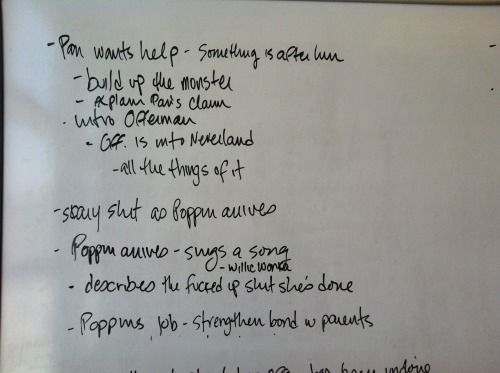 - Pan wants help - something is after him
- build up the monster
- explain Pan's claim
· intro Offerman
- Off. is into Neverland
- all the things of it
- scary shit as Poppin arrives
- Poppin arrives - sings a song
- Willie Wonka
- describes the fucked up shit she's done
- Poppins job - strengthen bond w parents
has been undone